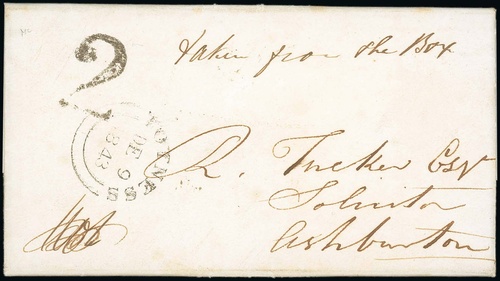 2
Taken from the Box
TOTNESS
DE 9
1843
R. Tucker Esqr
Solicitor
Ashburton